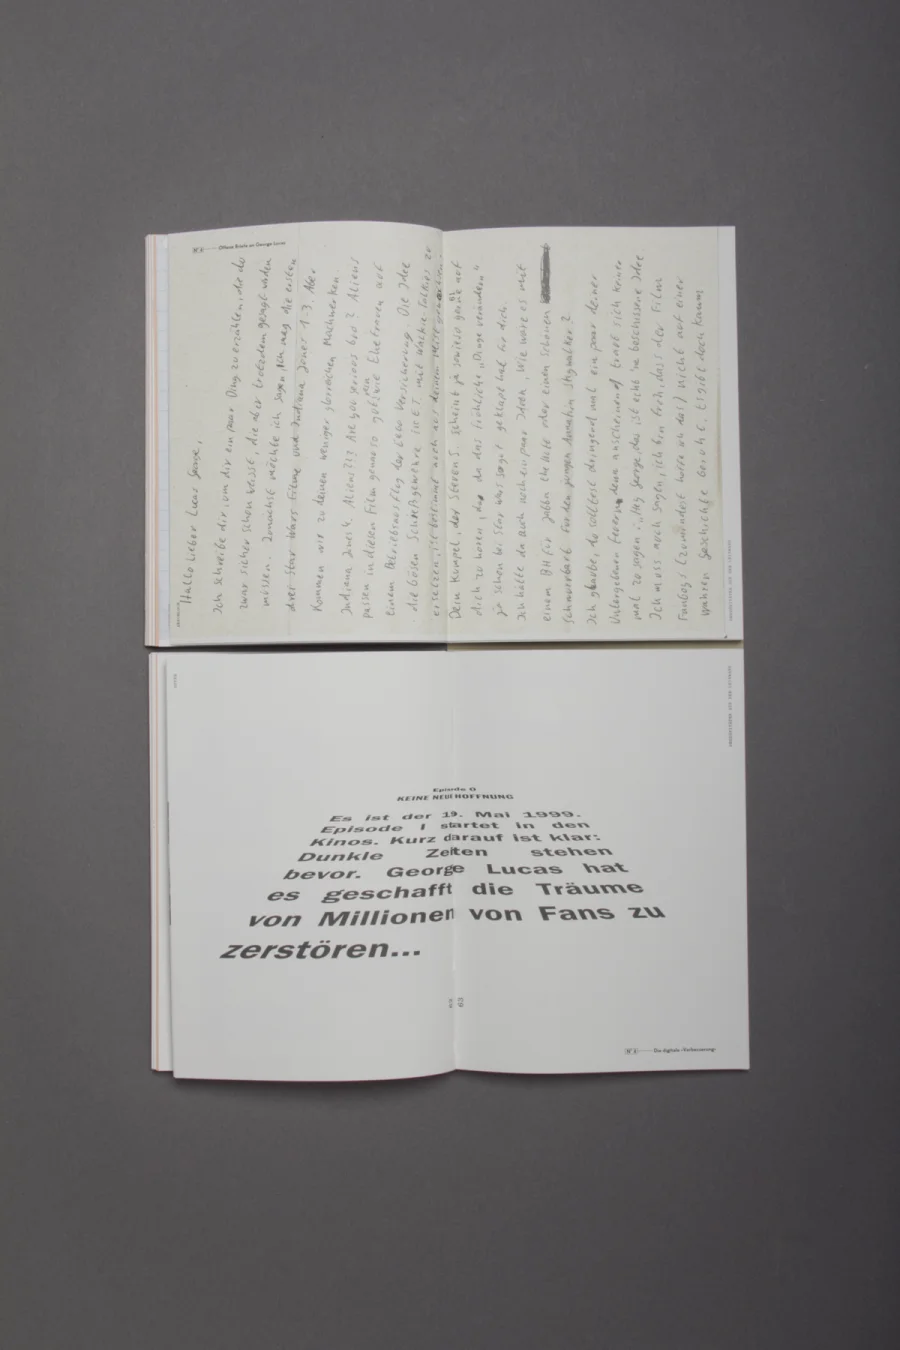 Nº 6 Offene Briefe an George Lucas
Hallo lieber Lucas George,
Ich schreibe dir, um dir ein paar Ding zu erzählen, die du
zwar sicher schon weisst, die aber trotzdem gesagt werden
müssen. Zunächst möchte ich sagen, ich mag die ersten
drei Star Wars Filme und Indiana Jones 1-3. Aber
kommen wir zu deinen weniger glorreichen Machwerken.
Indiana Jones 4. Aliens?!? Are you serious bro? Aliens
passen in diesen Film genauso gut wie Ehefrauen auf
einen Betriebsausflug der Ergo Versicherung. Die Idee
die bösen Schießgewehre in E.T. mit Walkie-Talkies zu
ersetzen, ist bestimmt auch auf deinem
Dein Kumpel, der Steven S. scheint ja sowieso gerne auf
dich zu hören, da das fröhliche „Dinge verändern"
ja schon bei Star Wars so gut geklappt hat für dich.
Ich hätte da auch noch ein paar Ideen, wie wäre es mit
einem BH für Jabba the Hutt oder einen schönen
Schnurrbart für den jungen Annakin Skywalker?
Ich glaube, du solltest dringend mal ein paar deiner
Untergebener feuern, denn anscheinend traut sich keiner
mal zu sagen: „Hey George, das ist echt 'ne beschissene Idee
Ich muss noch sagen, ich bin froh, dass der Film
Fanboys (zumindest hoffe ich das) nicht auf einer
wahren Geschichte beruht. Es gibt doch kaum
Episode 0
KEINE NEUE HOFFNUNG
Es ist der 19. Mai 1999.
Episode I startet in den
Kinos. Kurz darauf ist klar:
Dunkle Zeiten stehen
bevor. George Lucas hat
es geschafft die Träume
von Millionen von Fans zu
zerstören...
63
Nº 4 Die digitale ‹Verbesserung›